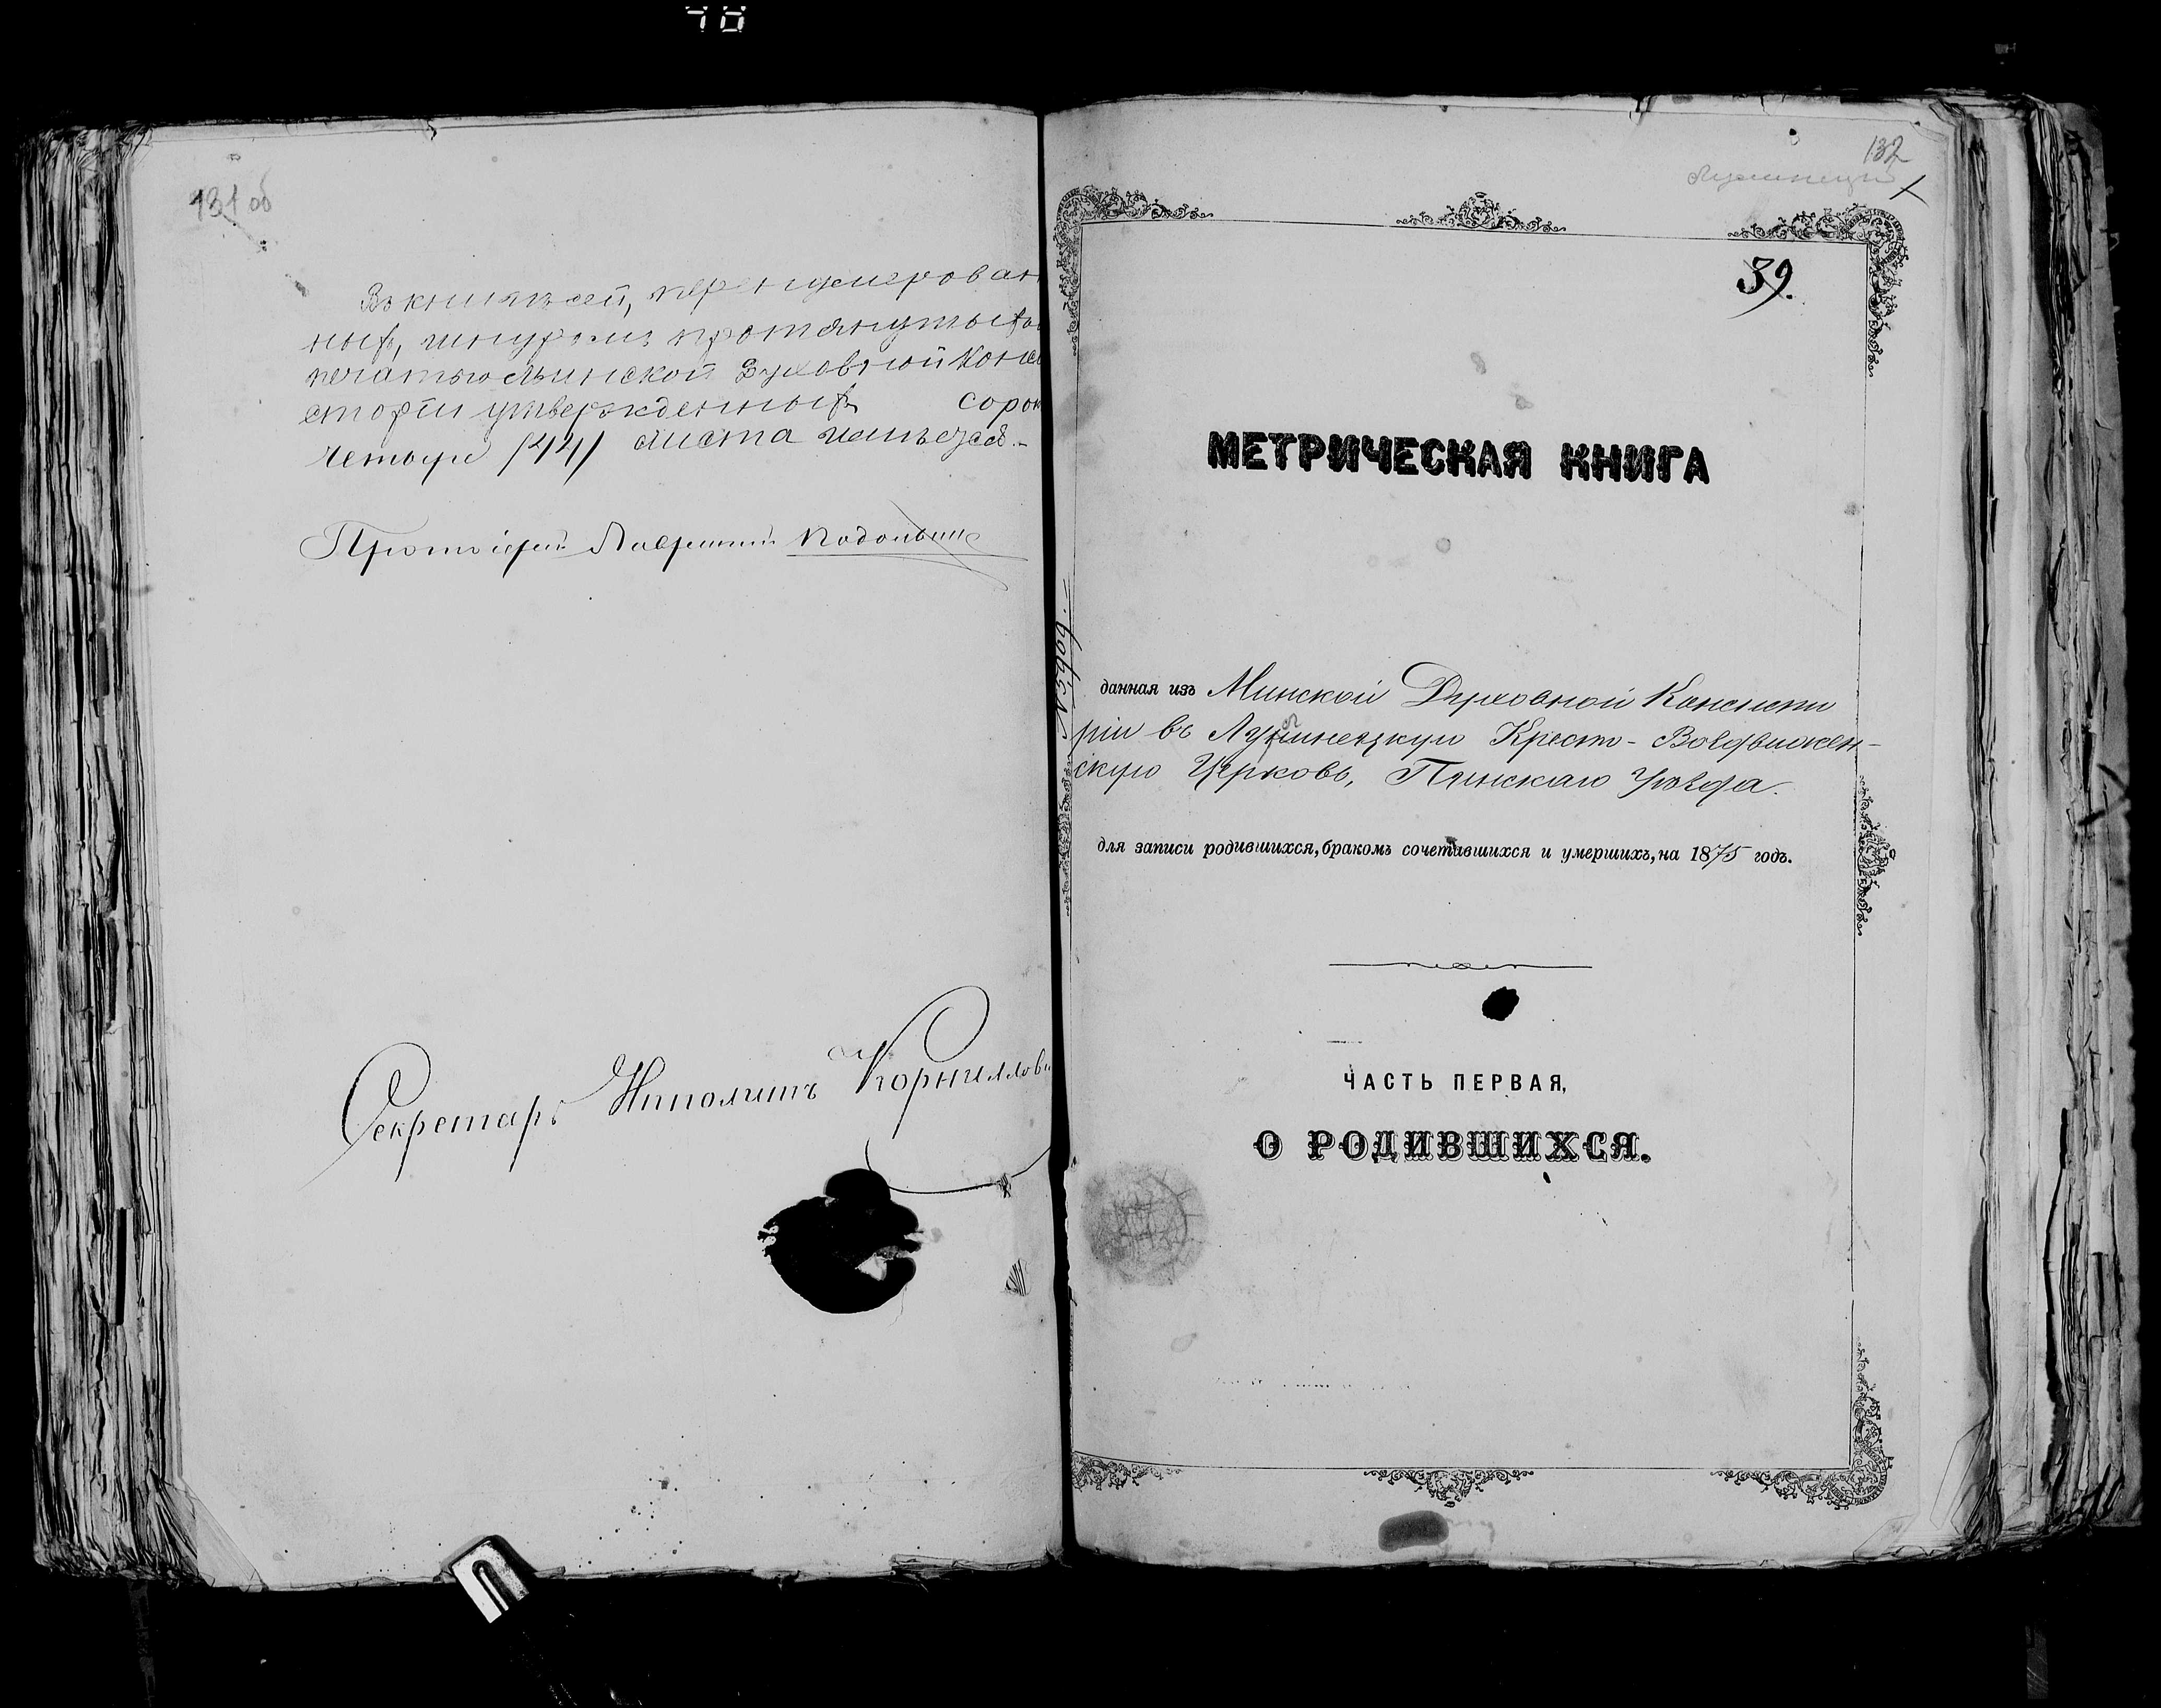 131 об
Въ книгѣ сей, перенумерован
ныхъ, шнуромъ протянутыхъ
печатью Минской Духовной Конси
сторіи утвержденныхъ сорок
четыре /44/ листа
Протоіерей
Секретарь Ипполитъ Корнилови
132
39.
МЕТРИЧЕСКАЯ КНИГА
данная изъ Минской Духовной Консисто
ріи въ Лунинецкую Кресто-Воздвижен-
скую Церковь, Пинскаго Уѣзда.
для записи родившихся, бракомъ сочетавшихся и умершихъ, на 1875 годъ.
ЧАСТЬ ПЕРВАЯ,
О РОДИВШИХСЯ.